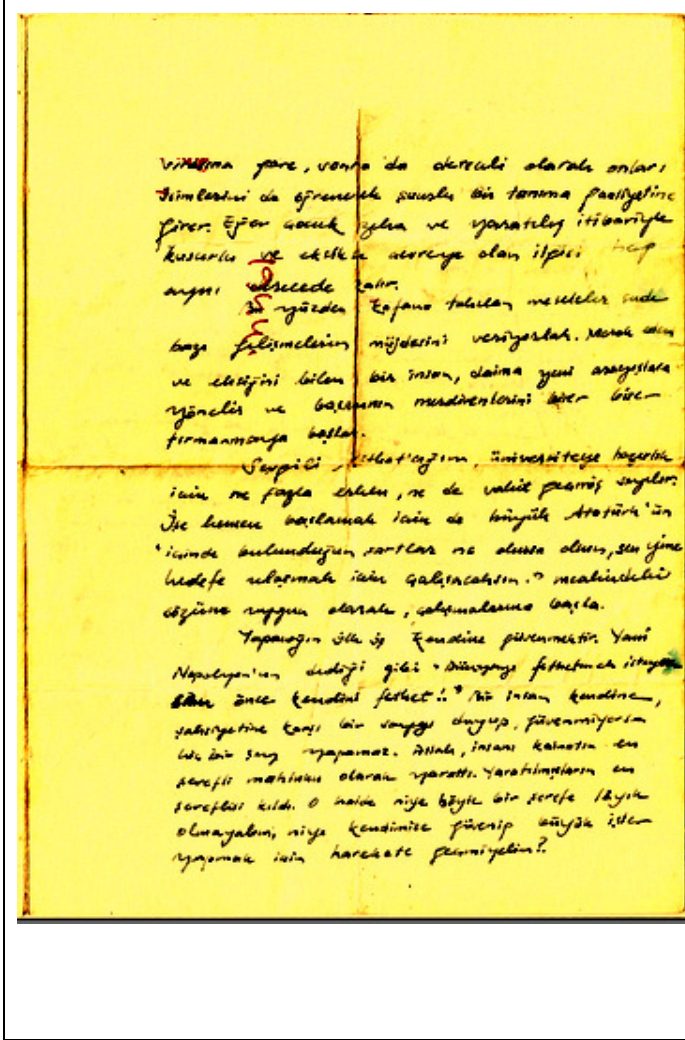 göre, sonra da dereceli olarak onları
isimlerini de öğrenerek şuurlu bir tanıma faaliyetine
girer. Eğer çocuk zeka ve yaratılış itibariyle
kusurlu ve eksikse çevreye olan ilgisi hep
aynı derecede kalır.
Bu yüzden kafana takılan meseleler sade
bazı gelişmelerin müjdesini veriyorlar. Merak eden
ve eksiğini bilen bir insan, daima yeni arayışlara
yönelir ve başarının merdivenlerini birer birer
tırmanmaya başlar.
Sevgili üniversiteye hazırlık
için ne fazla erken, ne de vakit geçmiş sayılır.
İşe hemen başlamak için de büyük Atatürk'ün
"içinde bulunduğun şartlar ne olursa olsun, sen yine
hedefe ulaşmak için çalışacaksın." mealindeki
sözüne uygun olarak, çalışmalarına başla.
Yapacağın ilk iş kendine güvenmektir. Yani
Napolyon'un dediği gibi "Dünyayı fethetmek istiyorsan
önce kendini fethet!." Bir insan kendine,
şahsiyetine karşı bir saygı duyup, güvenmiyorsa
hiç bir şey yapamaz. Allah, insanı kainatın en
şerefli mahluku olarak yarattı. Yaratılmışların en
şereflisi kıldı. O halde niye böyle bir şerefe layık
olmayalım, niye kendimize güvenip büyük işler
yapmak için harekete geçmiyelim?